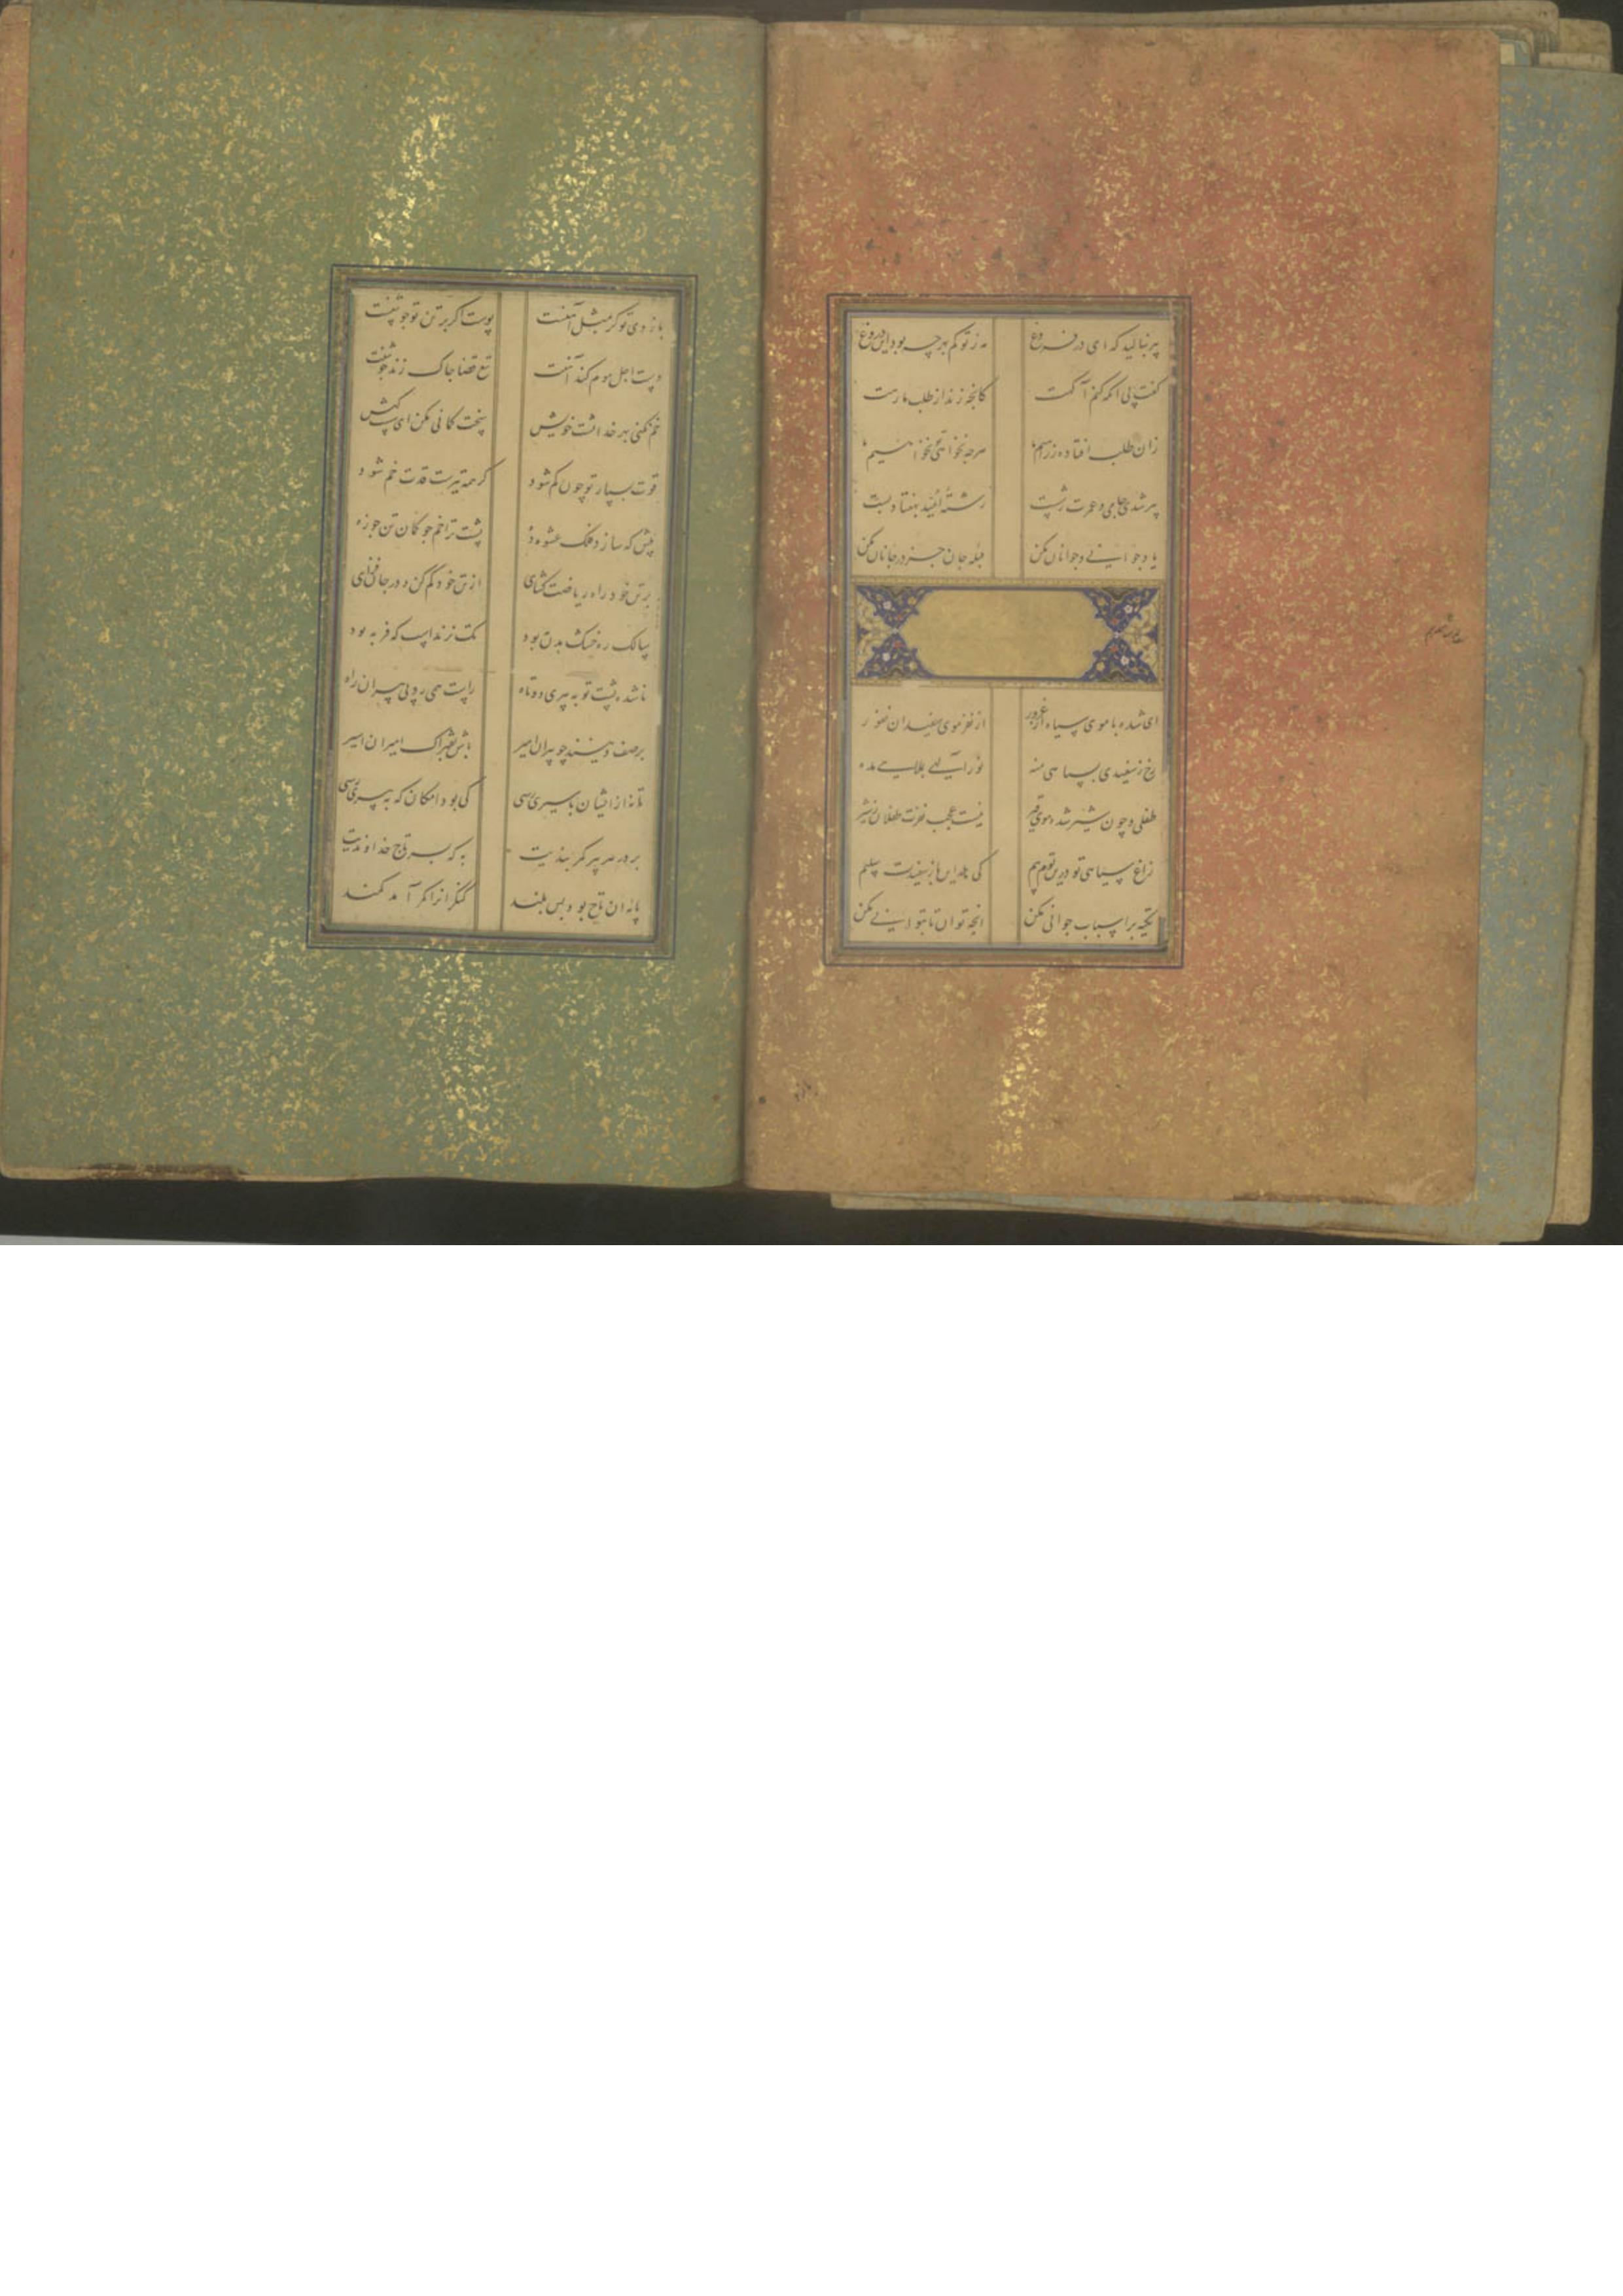 پیر بنالید که ای در فروغ
مه ز تو کم بهر چه بود این دروغ
گفت پی آنکه کنم آگهت
کانچه زند از طلب ما رهت
زان طلب افتاده ز رسم ما
هرچه نخواهی تو نخواهیم ما
پیر شدی جامی و عمرت ز شست
رشته امید به هفتاد بست
یاد جوانی و جوانان مکن
میل به جان جز در جانان مکن
ای شده با موی سیاه از غرور
از نفر موی سفیدان نفور
رخ ز سفیدی به سیاهی منه
نور الهی به ملاهی مده
طفلی و چون شیر شده موی پیر
نیست عجب نفرت طفلان ز شیر
زاغ سیاهی تو درین بوم و بیم
کی باز سفیدت سلیم
تکیه بر اسباب جوانی مکن
آنچه توان تا بتوانی مکن
بازوی تو گر بمثل آهنست
پوست اگر بر تن تو جوشنست
دست اجل موم کند آهنت
تیغ قضا چاک زند جوشنت
خم نکنی بهر خدا پشت خویش
سخت کمانی مکن ای سست کیش
قوت بسیار تو چون کم شود
گر همه تیرست قدت خم شود
پیش که سازد فلک عشوه ده
پشت ترا خم چو کمان تن چو زه
بر تن خود راه ریاضت گشای
از تن خود کم کن و در جان فزای
سالک ره خشک بدن بود
سگ نزند اسب که فربه بود
ناشده پشت تو به پیری دوتاه
راست همی رو پی پیران راه
بر صف دینند چو پیران امیر
باش به فتراک امیران اسیر
تا نه از ایشان به اسیری رسی
کی بود امکان که به پیری رسی
بر در هر پیر کمر بندیت
به که به سر تاج خداوندیت
پایه آن تاج بود بس بلند
کنگر آنرا کمر آمد کمند